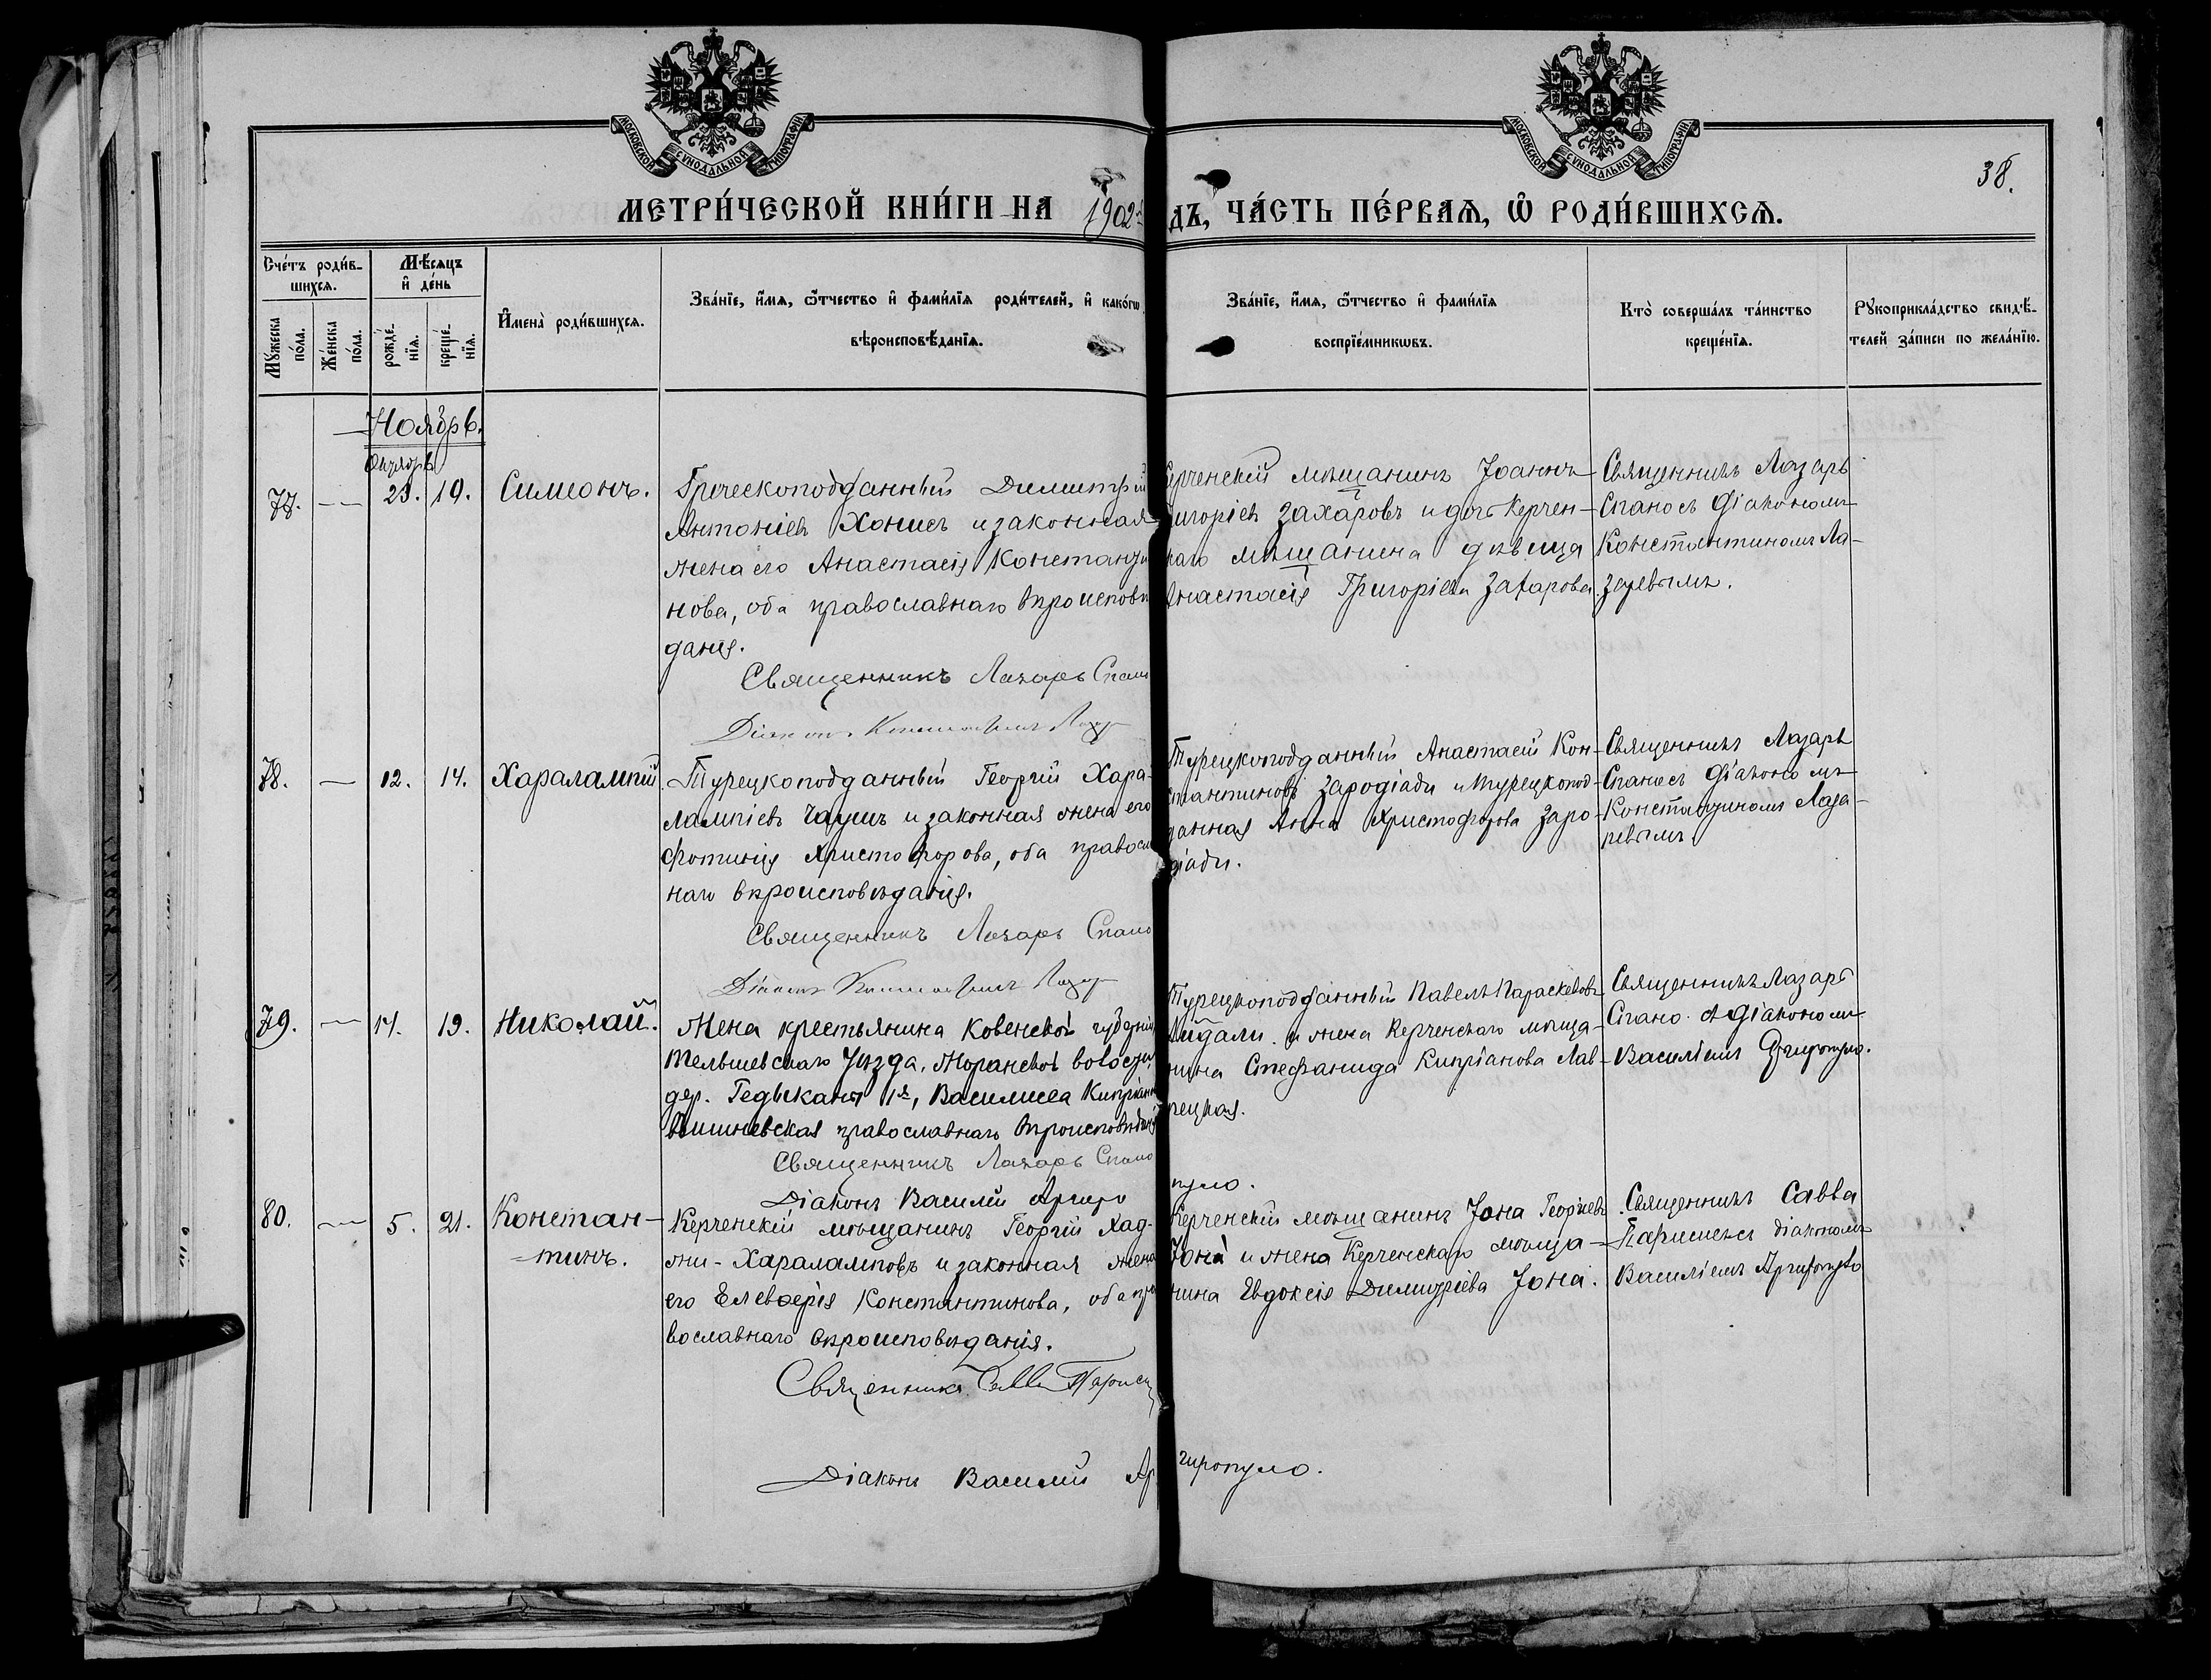 МОСКОВСКОЙ СѴНОДАЛЬНОЙ ТИПОГРАФІИ
МОСКОВСКОЙ СѴНОДАЛЬНОЙ ТИПОГРАФІИ
38.
МЕТРИ́ЧЕСКОЙ КНИ́ГИ НА 1902 ДЪ, ЧА́СТЬ ПЕ́РВАѦ, Ѡ҆ РОДИ́ВШИХСѦ.
Сче́тъ роди́в-
шихсѧ.
Мѣ́сѧцъ
и҆ де́нь
Мꙋ́жеска
по́ла.
Же́нска
по́ла.
рожде́-
нїѧ.
креще́-
нїѧ.
И҆мена̀ роди́вшихсѧ.
Зва́нїе, и҆́мѧ, ѻ҆́тчество и҆ фами́лїѧ роди́телей, и҆ како́гѡ
вѣроисповѣ́данїѧ.
Зва́нїе, и҆́мѧ, ѻ҆́тчество и҆ фами́лїѧ
воспрїе́мникѡвъ.
Кто̀ соверша́лъ та́инство
креще́нїѧ.
Рꙋкоприкла́дство свидѣ́-
телей за́писи по жела́нїю.
Ноябрь.
Октябрь
77. — 23. 19. Симеонъ.
Греческоподданный Димитрій
Антоніевъ Хонисъ и законная
жена его Анастасія Константи
нова, оба православнаго вѣроисповѣ
данія.
Священникъ Лазарь Спано
Діаконъ Константинъ Лазар
Керченскій мѣщанинъ Іоаннъ
Григоріевъ Захаровъ и дочь Керчен-
скаго мѣщанина дѣвица
Анастасія Григоріева Захарова.
Священникъ Лазарь
Спано съ діакономъ
Константиномъ Ла-
заревымъ.
78. — 12. 14. Харалампій.
Турецкоподданный Георгій Хара-
лампіевъ Чаушъ и законная жена его
Фотинія Христофорова, оба правосл
наго вѣроисповѣданія.
Священникъ Лазарь Спано
Діаконъ Константинъ Лазар
Турецкоподданный Анастасій Кон-
стантиновъ Зародіади и турецкопод-
данная Анна Христофорова Заро-
діади.
Священникъ Лазарь
Спано съ діакономъ
Константиномъ Лаза-
ревымъ
79. — 14. 19. Николай.
Жена крестьянина Ковенской губерніи
Тельшевскаго уѣзда, Жоранской волости,
дер. Гедыканя 1я, Василиса Кипріан
Вишневская православнаго вѣроисповѣданія
Священникъ Лазарь Спано
Діаконъ Василій Аргиро
пуло.
Турецкоподданный Павелъ Параскевовъ
Айдали и жена Керченскаго мѣща-
нина Стефанида Кипріанова Лав-
рецкая.
Священникъ Лазарь
Спано съ діакономъ
Василіемъ Аргиропуло.
80. — 5. 21. Констан-
-тинъ.
Керченскій мѣщанинъ Георгій Хад-
жи-Харалампов и законная жена
его Елевѳерія Константинова, оба пра
вославнаго вѣроисповѣданія.
Священникъ Савва Парисе
Діаконъ Василій Ар гиропуло.
Керченскій мѣщанинъ Іона Георгіевъ
Іона и жена Керченскаго мѣща-
нина Евдоксія Димитріева Іона.
Священникъ Савва
Парисисъ съ діакономъ
Василіемъ Аргиропуло